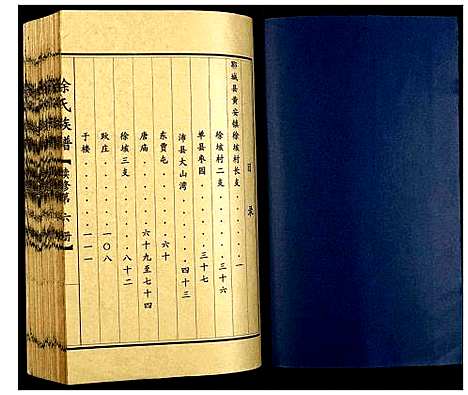 目录
郓城县黄安镇徐垓村长支........一
徐垓村二支........三十六
单县枣园........三十七
沛县大山湾........四十三
东贾屯........六十
唐庙........六十九至七十四
徐垓三支........八十二
玫庄........一〇八
于楼........一一一
徐氏族谱【续修第六册】